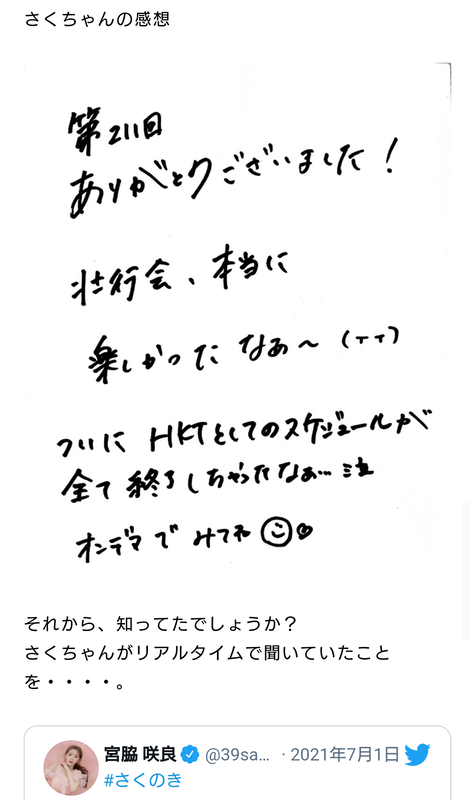 さくちゃんの感想
第211回
ありがとうございました！
壮行会、本当に
楽しかったなぁ〜(TT)
ついにHKTとしてのスケジュールが
全て終了しちゃったなぁ…泣
オンデマでみてね
それから、知ってたでしょうか？
さくちゃんがリアルタイムで聞いていたこと
を・・・・。
宮脇 咲良 @39sa... · 2021年7月1日
#さくのき